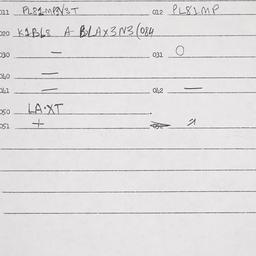 011 PL81MP8V3T 012 PL81MP
020 K1BL8 A BLAX3N3(084
030 — 031 O
040 —
041 — 042 —
050 LA·XT
051 +